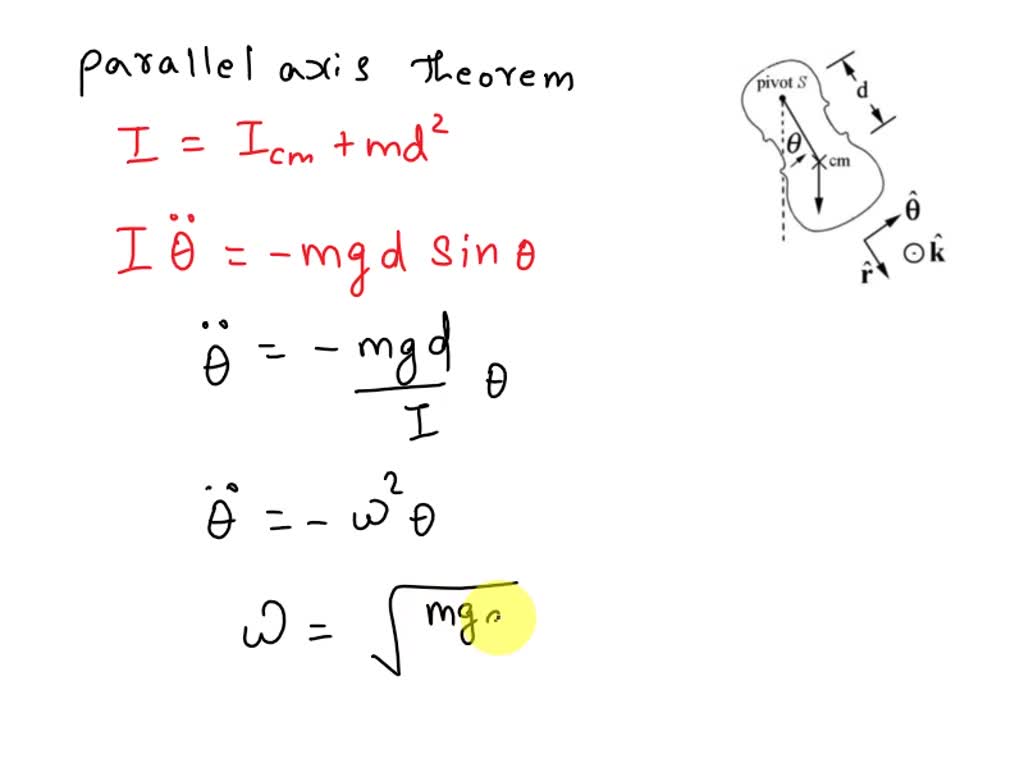 parallel axis theorem
I = Icm + md²
I θ̈ = - mgd sin θ
θ̈ = - mgd/I θ
θ̈ = - ω² θ
ω = √mg
pivot S
d
θ
cm
θ̂
r̂
⊙ k̂